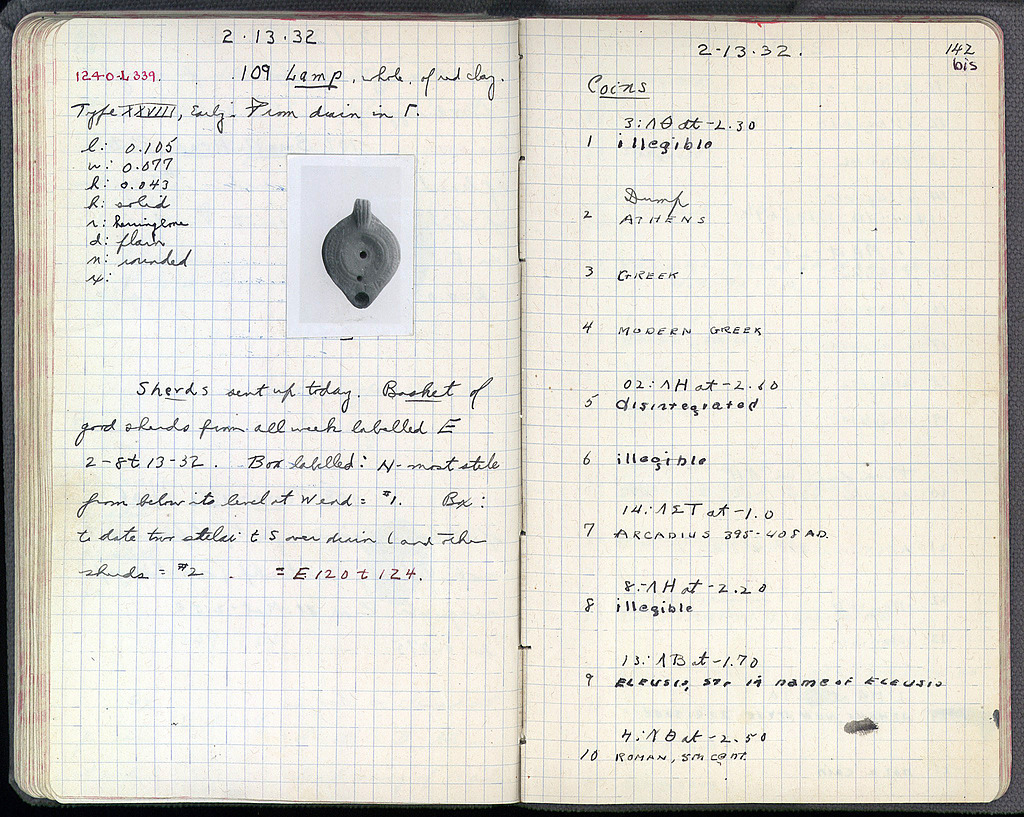 2·13·32
1240-L339. 109 Lamp, whole, of red clay.
Type XXVIII, Early. From drain in Γ.
l: 0.105
w: 0.077
h: 0.043
h: solid
r: herringbone
d: plain
n: rounded
Sherds sent up today. Basket of
good sherds from all week labelled E
2-8 t 13-32. Box labelled: N-most stele
from below its level at W end = #1. Bx:
to date two stelai t S over drain ( and other
sherds = #2. = E 120 t 124.
2-13-32.
142
bis
Coins
3:ΛΘ at -2.30
1 illegible
Dump
2 ATHENS
3 GREEK
4 MODERN GREEK
02:ΛH at -2.60
5 disintegrated
6 illegible
14:ΛΣT at -1.0
7 ARCADIUS 395-408 AD.
8:ΛH at -2.20
8 illegible
13:ΛB at -1.70
9 ELEUSIS, STr in name of ELEUSIS
4:ΛΘ at -2.50
10 ROMAN, 5th CENT.